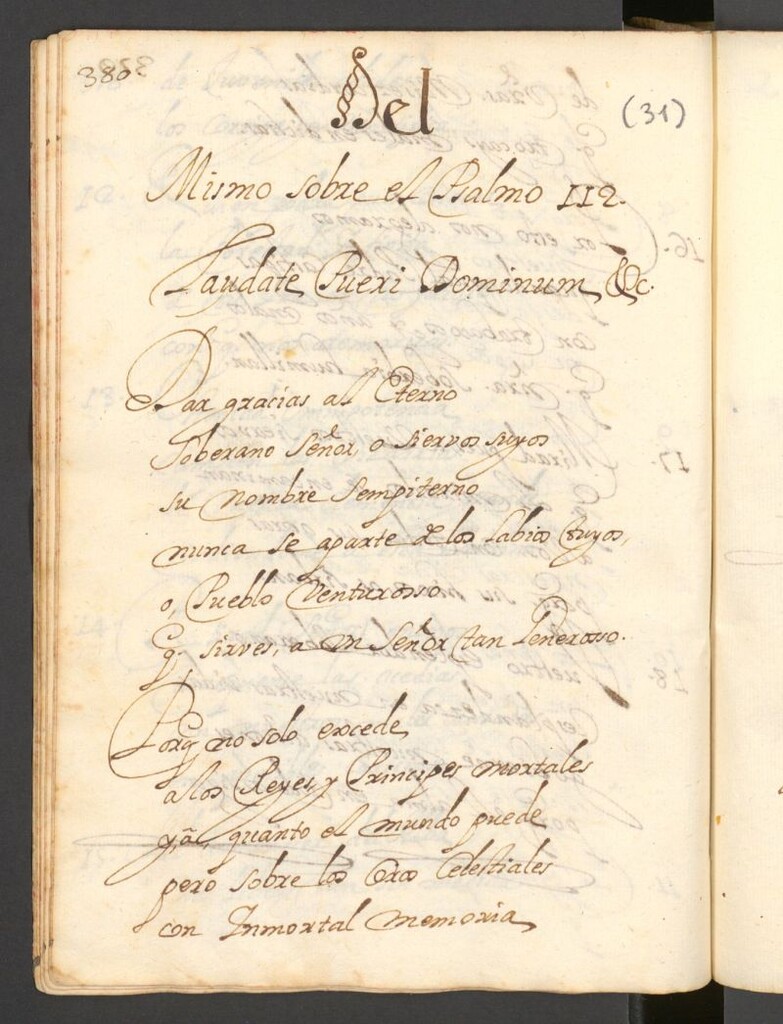 380.
Del
(31)
Mismo sobre el Psalmo 112.
Laudate Pueri Dominum, &c.
Dar gracias al Eterno
Soberano Señor, o siervos suyos
su Nombre Sempiterno
nunca se aparte de los Labios tuyos,
o, Pueblo Venturosso
q. sirves, a un Señor tan Generoso.
Porq no solo excede,
a los Reyes, y Principes mortales
y, a, quanto el mundo puede
pero sobre los Coros Celestiales
con Inmortal memoria,